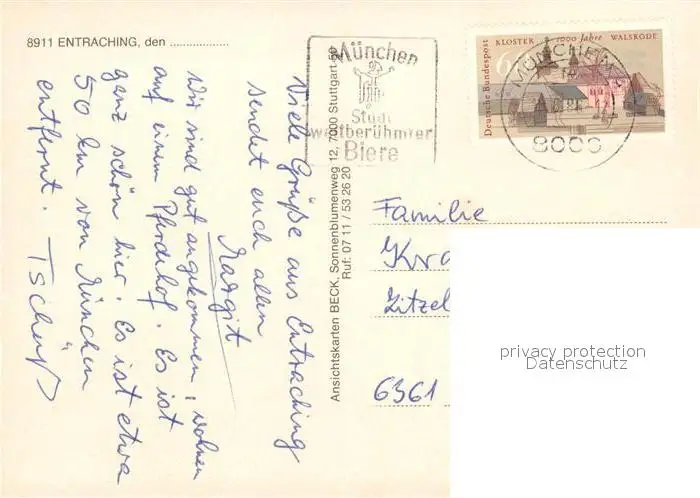 8911 ENTRACHING, den ..................
Viele Grüße aus Entraching
sendet euch allen
Margit
Wir sind gut angekommen, wohnen
auf einem Pferdehof. Es ist
ganz schön hier. Es ist etwa
50 km von München
entfernt. Tschüß
Ansichtskarten BECK, Sonnenblumenweg 12, 7000 Stuttgart 50
Ruf: 07 11 / 53 26 20
München
Stadt
weltberühmter
Biere
Deutsche Bundespost
KLOSTER 1000 Jahre WALSRODE
60
MÜNCHEN
8000
Familie
Zitzel
6361
privacy protection
Datenschutz